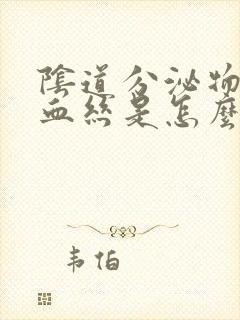 陰道分泌物
血絲是怎麼
韦伯